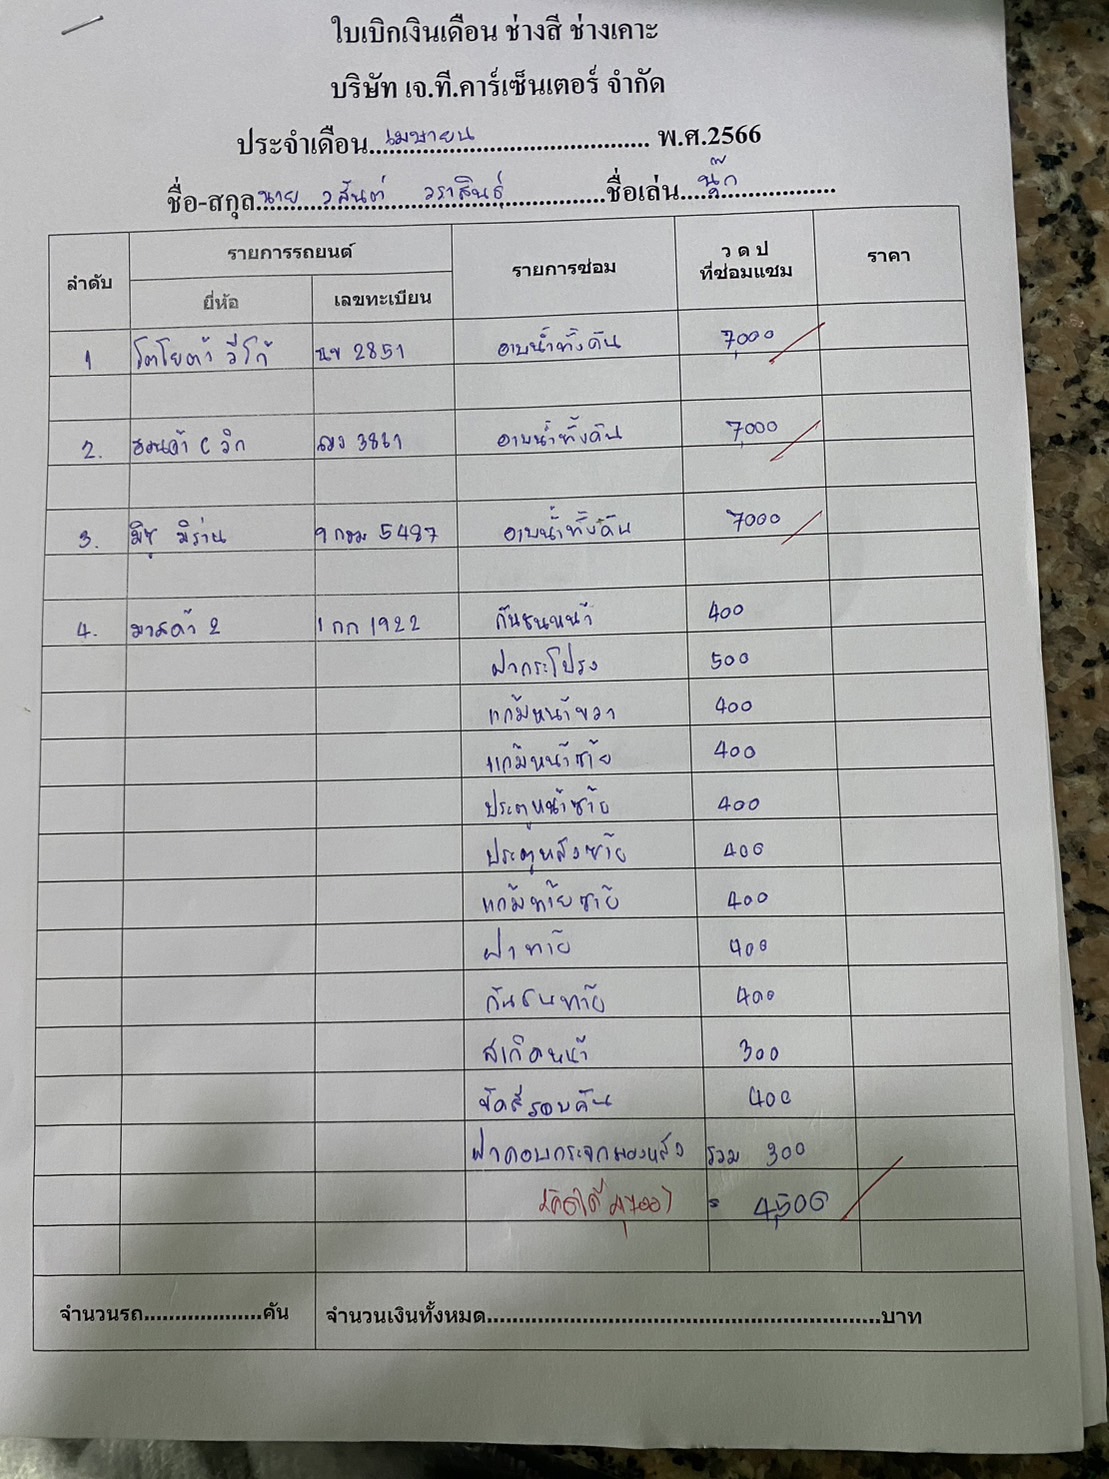 ใบเบิกเงินเดือน ช่างสี ช่างเคาะ
บริษัท เจ.ที.คาร์เซ็นเตอร์ จำกัด
ประจำเดือน...เมษายน... พ.ศ.2566
ชื่อ-สกุล...นาย วสันต์ วราสินธุ์...ชื่อเล่น...นุ๊ก...
ลำดับ รายการรถยนต์ รายการซ่อม ว ด ป ที่ซ่อมแซม ราคา
ยี่ห้อ เลขทะเบียน
1 โตโยต้า วีโก้ 2851 อาบน้ำทั้งคัน 7,000
2. ฮอนด้า C วิก 3861 อาบน้ำทั้งคัน 7,000
3. มิซู มิร่าน 5487 อาบน้ำทั้งคัน 7000
4. มาสด้า 2 1 กก 1922 กันชนหน้า 400
ฝากระโปรง 500
แก้มหน้าขวา 400
แก้มหน้าซ้าย 400
ประตูหน้าซ้าย 400
ประตูหลังซ้าย 400
แก้มท้ายซ้าย 400
ฝาท้าย 400
กันชนท้าย 400
สเกิตหน้า 300
ขัดสีรอบคัน 400
ฝาครอบกระจกมองหลัง รวม 300
= 4,500
จำนวนรถ...................คัน จำนวนเงินทั้งหมด................................................................บาท